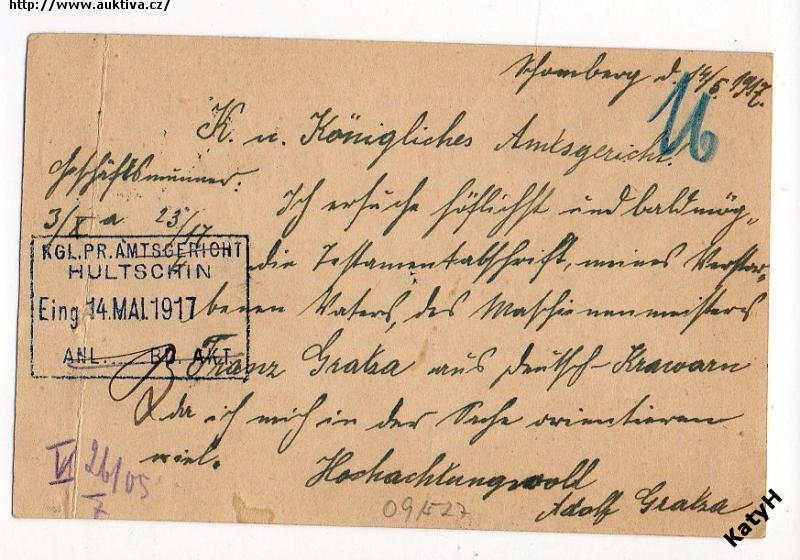 http://www.auktiva.cz/
Schomberg d. 14/5. 1917.
16
K. u. Königliches Amtsgericht!
Geschäftsnummer:
3/V a 23/17
Ich ersuche höflichst und baldmög„
die Testamentabschrift, meines Verstor„
benen Vaters, des Maschienenmeisters
Franz Gratza aus Deutsch-Krawarn
da ich mich in der Sache orientieren
wiel.
Hochachtungsvoll
Adolf Gratza
KGL.PR.AMTSGERICHT
HULTSCHIN
Eing 14.MAI.1917
ANL..... BD. AKT.
VI 26/05
09/527
KatyH